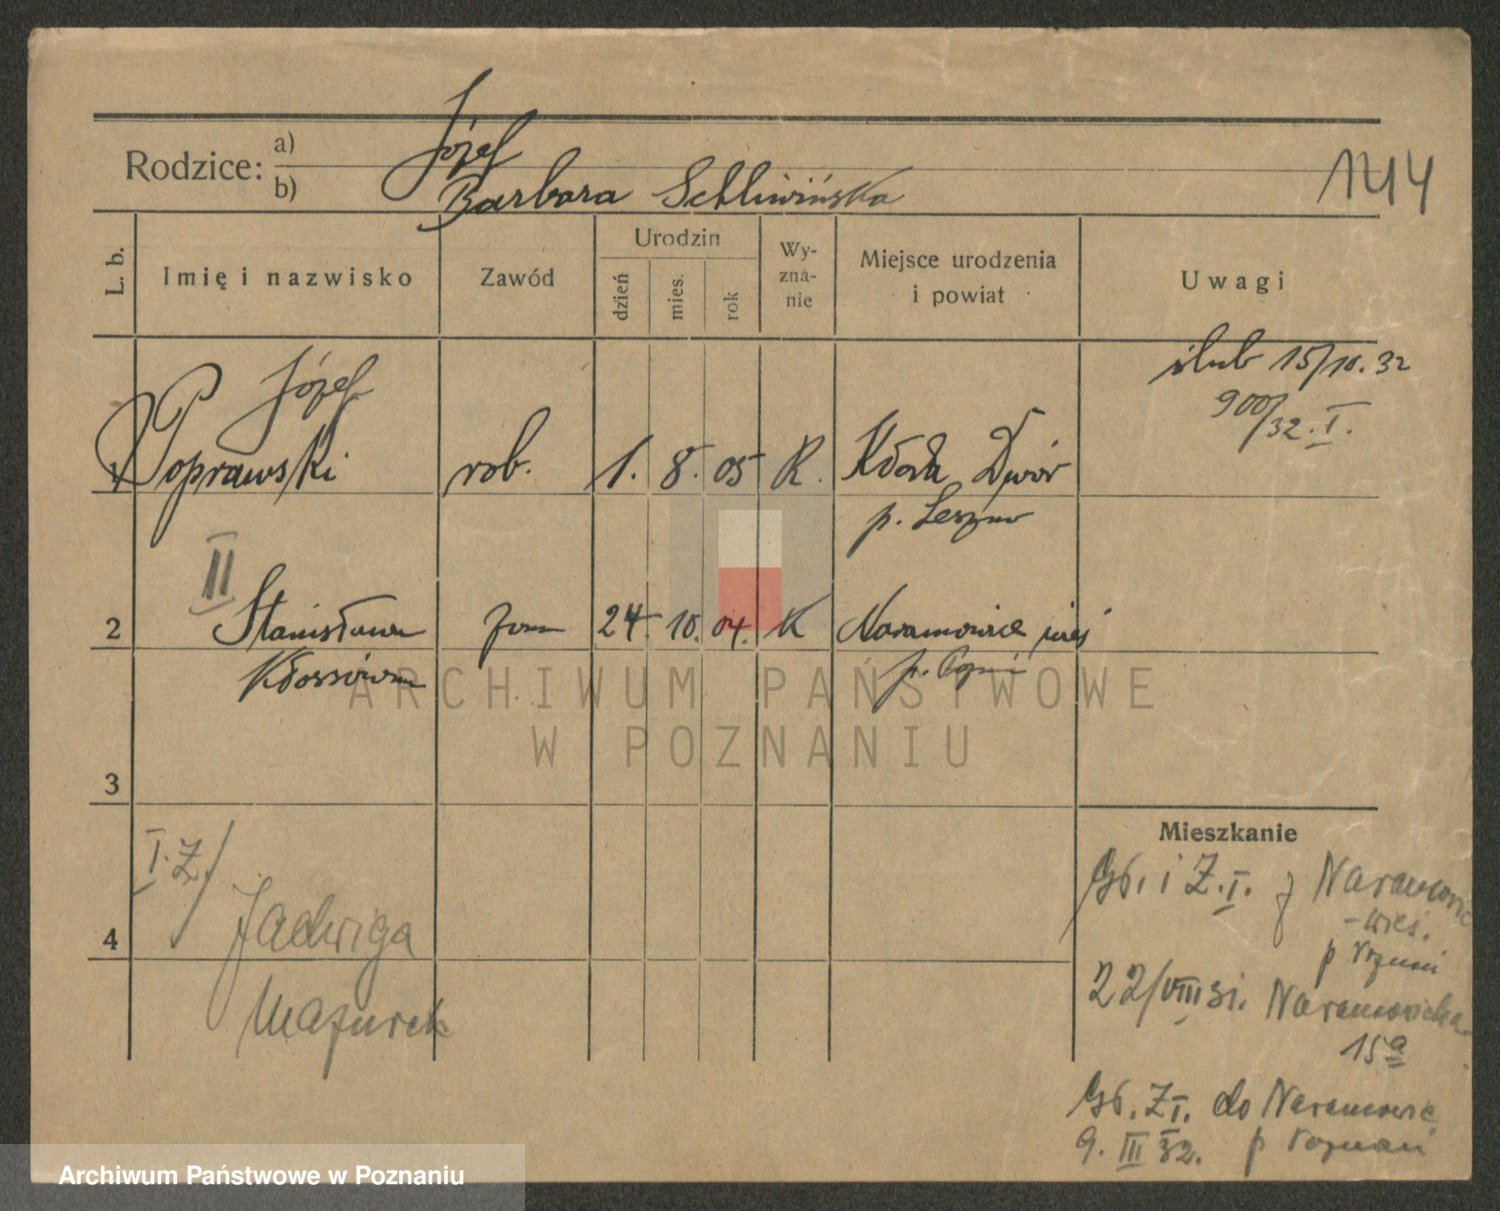 Rodzice:
a) Józef
b) Barbara Schliwińska
1444
L. b.
Imię i nazwisko
Zawód
Urodzin
dzień
mies.
rok
Wy-
zna-
nie
Miejsce urodzenia
i powiat
Uwagi
ślub 15/10. 32
900/32. I.
Józef
1 Poprawski rob. 1. 8. 05 K. Kłoda Dwór
p. Leszno
II
2 Stanisława 24. 10. 04. K Naramowice wieś
p. Pozn
ARCHIWUM PAŃSTWOWE
W POZNANIU
3
Mieszkanie
I. Ż/
4 Jadwiga
Mazurek
i Ż. I. z Naramowic
- wieś.
p Poznań
22/VIII 31. Naramowicka
15a
Ż I. do Naramowic
9. III 32. p Poznań
Archiwum Państwowe w Poznaniu